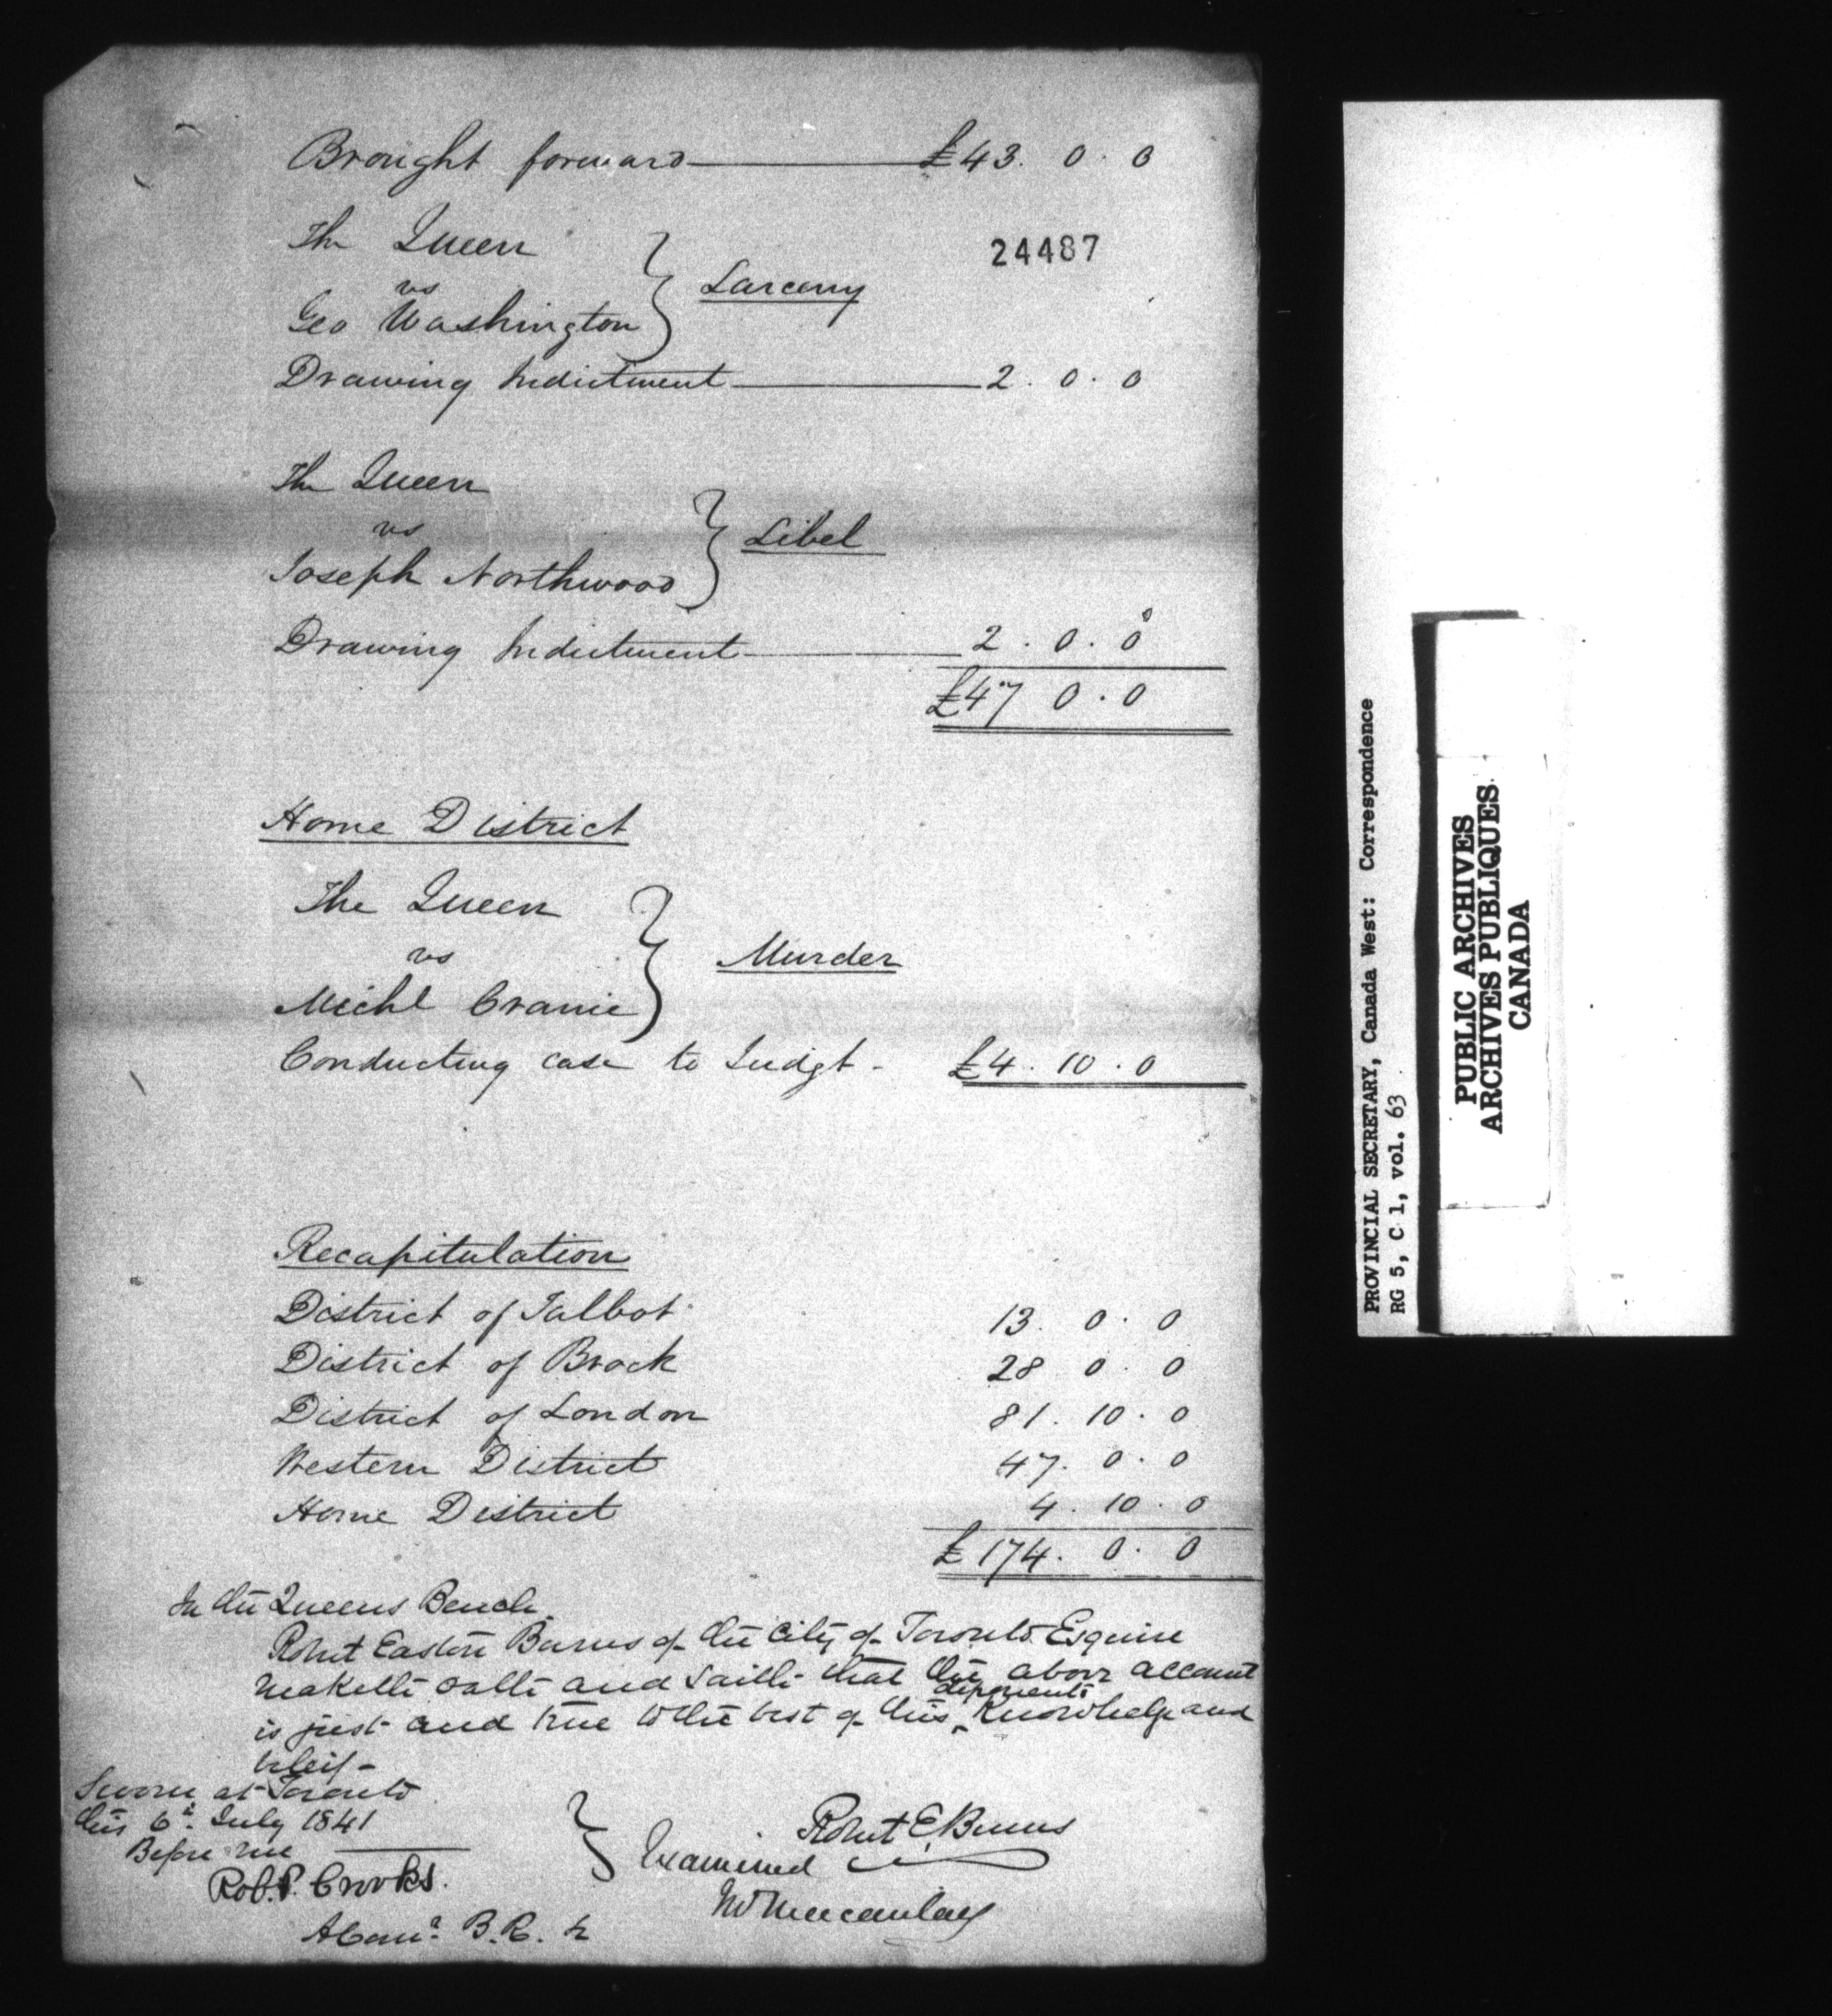 Brought forward £43. 0. 0
24487
The Queen
vs
Geo Washington
Larceny
Drawing Indictment 2. 0. 0
The Queen
vs
Joseph Northwood
Libel
Drawing Indictment 2. 0. 0
£47 0. 0
Home District
The Queen
vs
Michl Cranie
Murder
Conducting case to Judgt - £4. 10. 0
Recapitulation
District of Talbot 13. 0. 0
District of Brock 28 0. 0
District of London 81. 10. 0
Western District 47. 0. 0
Home District 4. 10. 0
£174. 0. 0
In the Queens Bench
Robert Easton Burns of the City of Toronto Esquire
maketh oath and saith that the above account
is just and true to the best of this deponents Knowledge and
belief -
Sworn at Toronto
this 6th July 1841
Before me
Rob. P. Crooks.
B.R.
Robert E. Burns
Examined
Macaulay
PROVINCIAL SECRETARY, Canada West: Correspondence
RG 5, C 1, vol. 63
PUBLIC ARCHIVES
ARCHIVES PUBLIQUES
CANADA